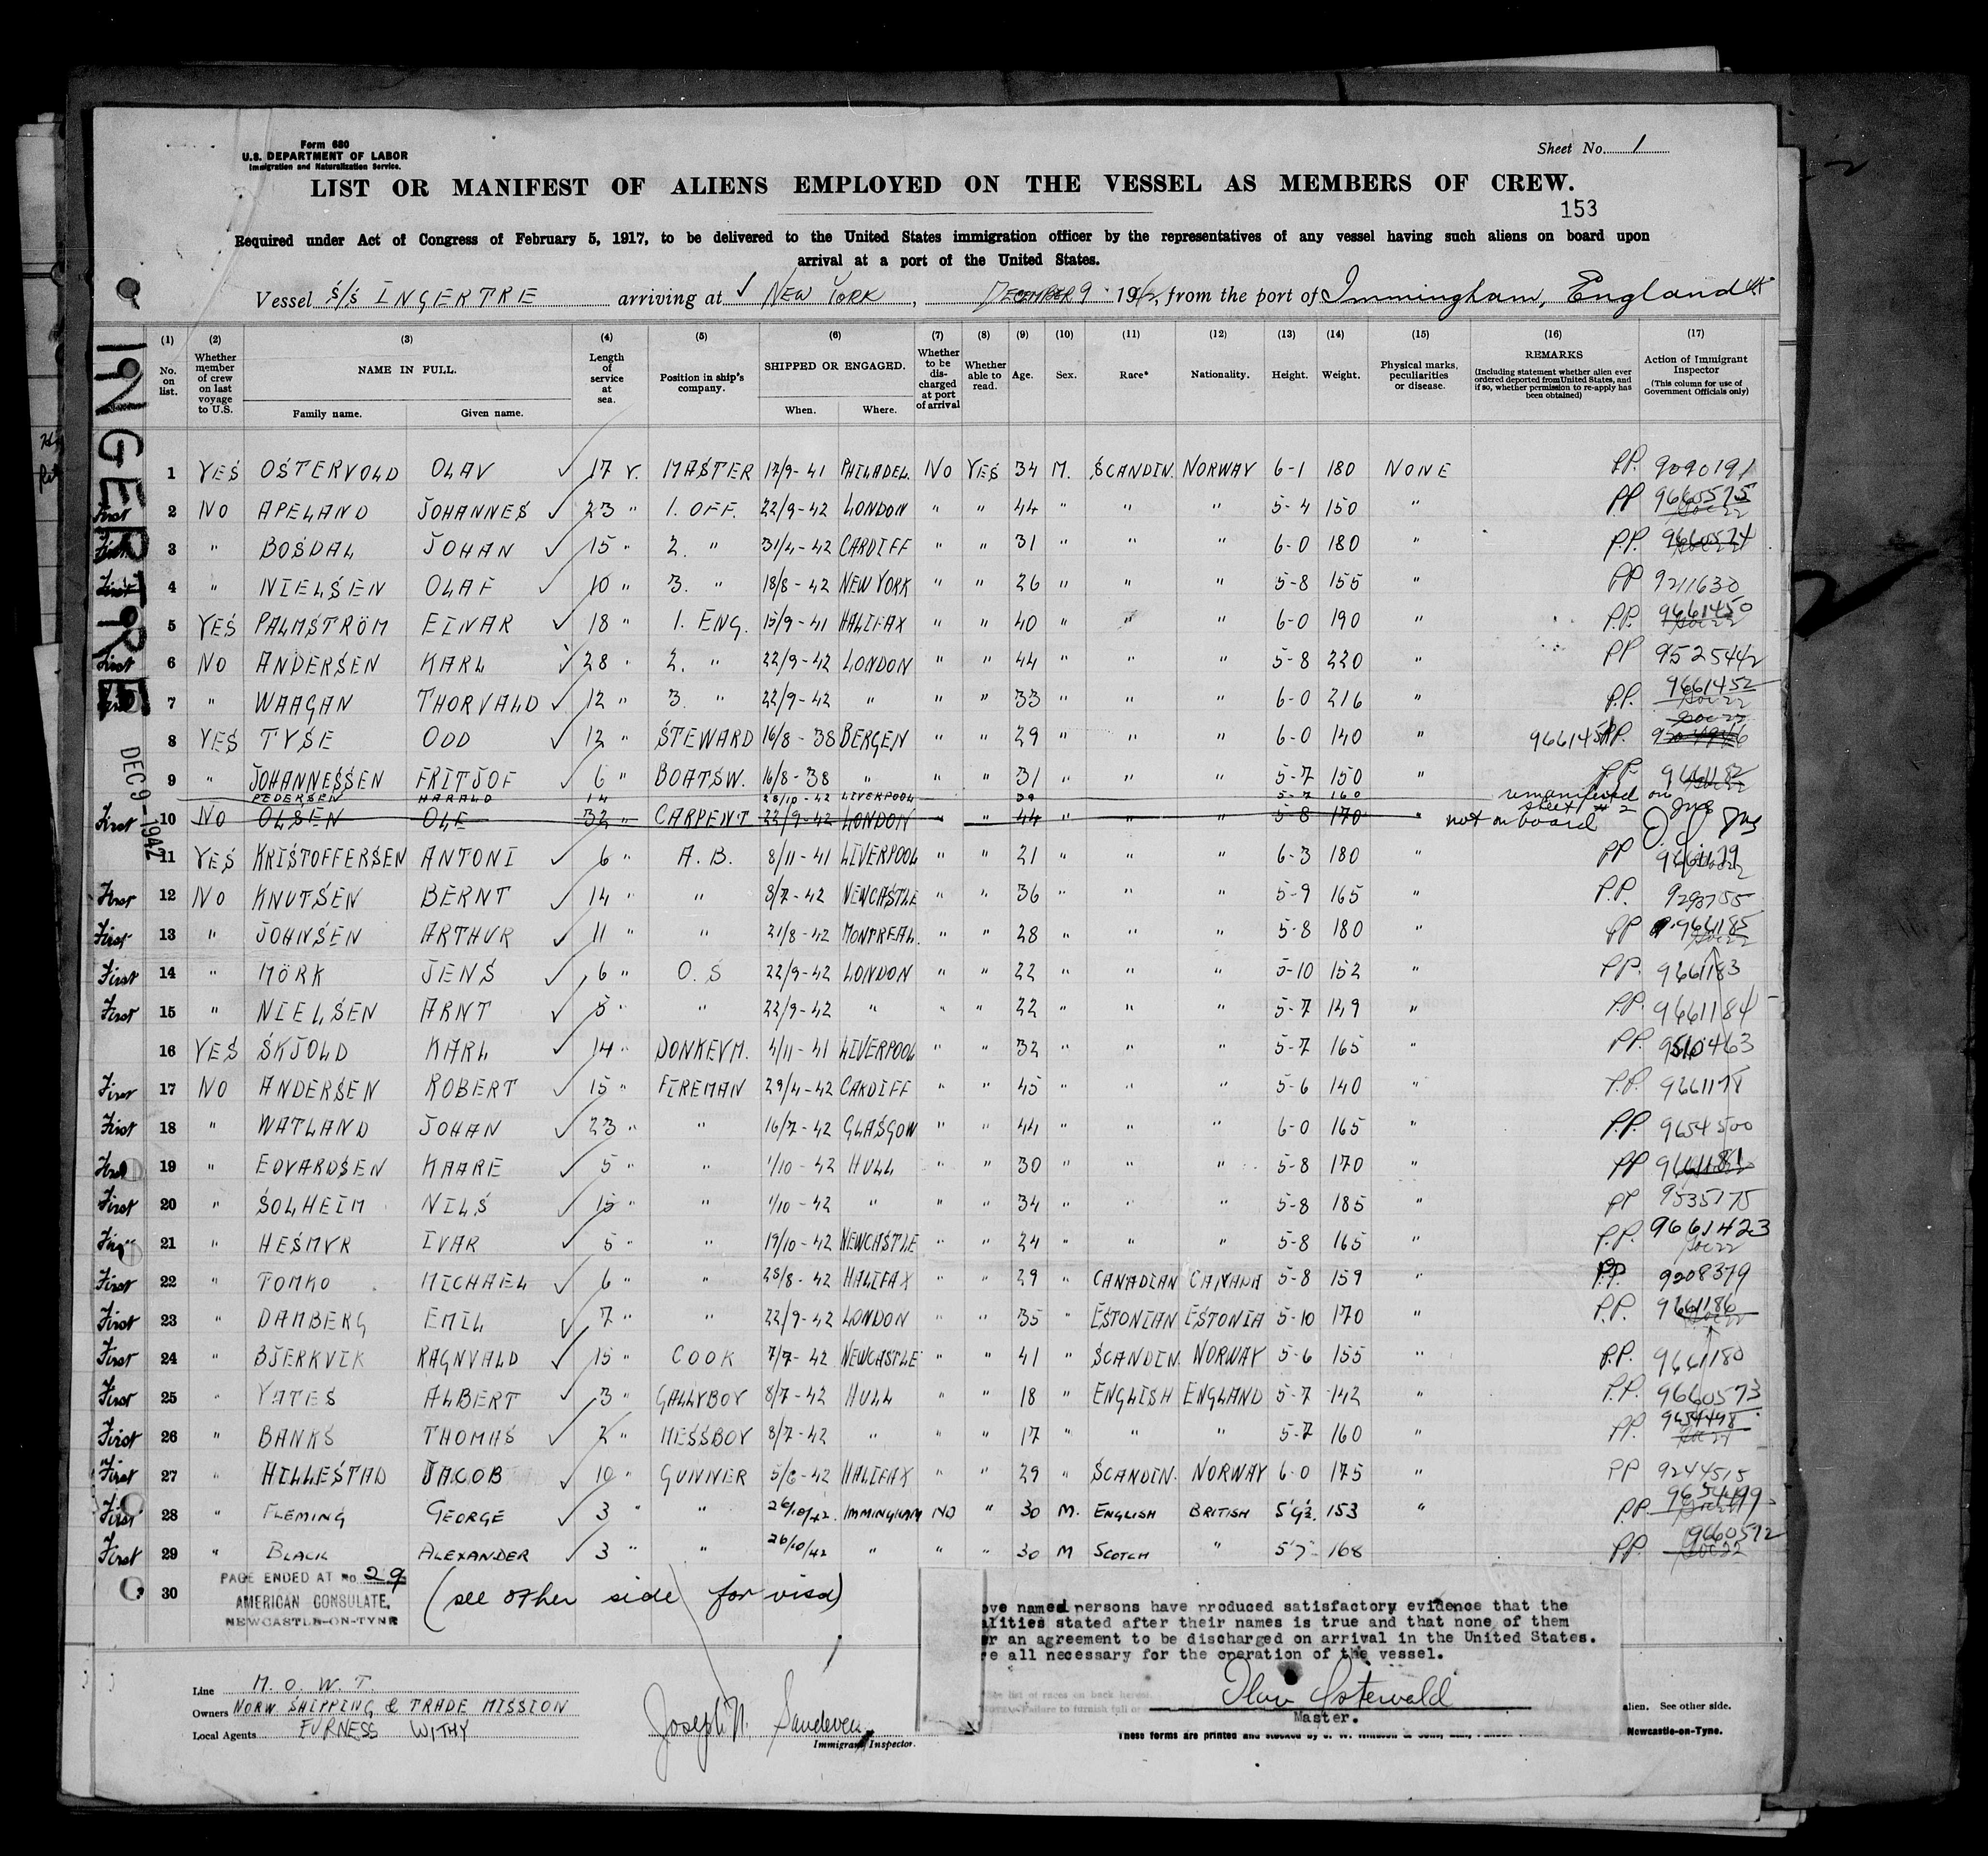 Form 680
U.S. DEPARTMENT OF LABOR
Immigration and Naturalization Service.
Sheet No. 1
LIST OR MANIFEST OF ALIENS EMPLOYED ON THE VESSEL AS MEMBERS OF CREW.
153
Required under Act of Congress of February 5, 1917, to be delivered to the United States immigration officer by the representatives of any vessel having such aliens on board upon
arrival at a port of the United States.
Vessel S/S INGERTRE arriving at NEW YORK, DECEMBER 9 1942, from the port of Immingham, England
INGERTRE
DEC 9-1942
(1) (2) (3) (4) (5) (6) (7) (8) (9) (10) (11) (12) (13) (14) (15) (16) (17)
No. on list. Whether member of crew on last voyage to U.S. NAME IN FULL. Family name. Given name. Length of service at sea. Position in ship's company. SHIPPED OR ENGAGED. When. Where. Whether to be discharged at port of arrival Whether able to read. Age. Sex. Race* Nationality. Height. Weight. Physical marks, peculiarities or disease. REMARKS (Including statement whether alien ever ordered deported from United States, and if so, whether permission to re-apply has been obtained) Action of Immigrant Inspector (This column for use of Government Officials only)
1 YES OSTERVOLD OLAV 17 Y. MASTER 17/9-41 PHILADEL. NO YES 34 M. SCANDIN. NORWAY 6-1 180 NONE PP. 9090191
First 2 NO APELAND JOHANNES 23 " 1. OFF. 22/9-42 LONDON " " 44 " " " 5-4 150 " PP 9660575
First 3 " BOSDAL JOHAN 15 " 2. " 31/4-42 CARDIFF " " 31 " " " 6-0 180 " P.P. 9660574
First 4 " NIELSEN OLAF 10 " 3. " 18/8-42 NEW YORK " " 26 " " " 5-8 155 " PP 9211630
5 YES PALMSTRÖM EINAR 18 " 1. ENG. 15/9-41 HALIFAX " " 40 " " " 6-0 190 " P.P. 9661450
First 6 NO ANDERSEN KARL 28 " 2. " 22/9-42 LONDON " " 44 " " " 5-8 220 " PP 9525442
First 7 " WAAGAN THORVALD 12 " 3. " 22/9-42 " " " 33 " " " 6-0 216 " P.P. 9661452
8 YES TYSE ODD 12 " STEWARD 16/8-38 BERGEN " " 29 " " " 6-0 140 " PP.
9 " JOHANNESSEN FRITJOF 6 " BOATSW. 16/8-38 " " " 31 " " " 5-7 150 " P.P. 9661182
PEDERSEN HARALD 14 28/10-42 LIVERPOOL 29 5-7 160 remanifested on sheet # 2
First 10 NO OLSEN OLE 32 " CARPENT 22/9-42 LONDON " " 44 " " " 5-8 170 " not on board
11 YES KRISTOFFERSEN ANTONI 6 " A.B. 8/11-41 LIVERPOOL " " 21 " " " 6-3 180 " PP 9661179
First 12 NO KNUTSEN BERNT 14 " " 8/7-42 NEWCASTLE " " 36 " " " 5-9 165 " P.P. 9293755
First 13 " JOHNSEN ARTHUR 11 " " 21/8-42 MONTREAL. " " 28 " " " 5-8 180 " PP 9661185
First 14 " MÖRK JENS 6 " O.S 22/9-42 LONDON " " 22 " " " 5-10 152 " P.P. 9661183
First 15 " NIELSEN ARNT 5 " " 22/9-42 " " " 22 " " " 5-7 149 " P.P. 9661184
16 YES SKJOLD KARL 14 " DONKEYM. 4/11-41 LIVERPOOL " " 32 " " " 5-7 165 " P.P. 9510463
First 17 NO ANDERSEN ROBERT 15 " FIREMAN 29/4-42 CARDIFF " " 45 " " " 5-6 140 " P.P. 9661178
First 18 " WATLAND JOHAN 23 " " 16/7-42 GLASGOW " " 44 " " " 6-0 165 " P.P. 9654500
First 19 " EDVARDSEN KAARE 5 " " 1/10-42 HULL " " 30 " " " 5-8 170 " PP 9661181
First 20 " SOLHEIM NILS 15 " " 1/10-42 " " " 34 " " " 5-8 185 " PP 9535175
First 21 " HESMYR IVAR 5 " " 19/10-42 NEWCASTLE " " 24 " " " 5-8 165 " P.P. 9661423
First 22 " TOMKO MICHAEL 6 " " 25/8-42 HALIFAX " " 29 " CANADIAN CANADA 5-8 159 " P.P. 9208379
First 23 " DAMBERG EMIL 7 " " 22/9-42 LONDON " " 35 " ESTONIAN ESTONIA 5-10 170 " P.P. 9661186
First 24 " BJERKVIK RAGNVALD 15 " COOK 7/7-42 NEWCASTLE " " 41 " SCANDIN. NORWAY 5-6 155 " P.P. 9661180
First 25 " YATES ALBERT 3 " GALLYBOY 8/7-42 HULL " " 18 " ENGLISH ENGLAND 5-7 142 " P.P. 9660573
First 26 " BANKS THOMAS 2 " MESSBOY 8/7-42 " " " 17 " " " 5-7 160 " PP. 9654498
First 27 " HILLESTAD JACOB 10 " GUNNER 5/6-42 HALIFAX " " 29 " SCANDIN. NORWAY 6-0 175 " PP 9244515
First 28 " FLEMING GEORGE 3 " " 26/10/42. IMMINGHAM NO " 30 M. ENGLISH BRITISH 5'9½. 153 " PP. 9654499
First 29 " BLACK ALEXANDER 3 " " 26/10/42 " " " 30 M SCOTCH " 5'7 168 PP. 9660572
30 PAGE ENDED AT No. 29 (see other side for visa)
AMERICAN CONSULATE,
NEWCASTLE-ON-TYNE
ove named persons have produced satisfactory evidence that the
alities stated after their names is true and that none of them
er an agreement to be discharged on arrival in the United States.
re all necessary for the operation of the vessel.
Olav Ostervold
Master.
Line M.O.W.T.
Owners NORW SHIPPING & TRADE MISSION
Local Agents FURNESS WITHY
Immigrant Inspector.
alien. See other side.
Newcastle-on-Tyne.